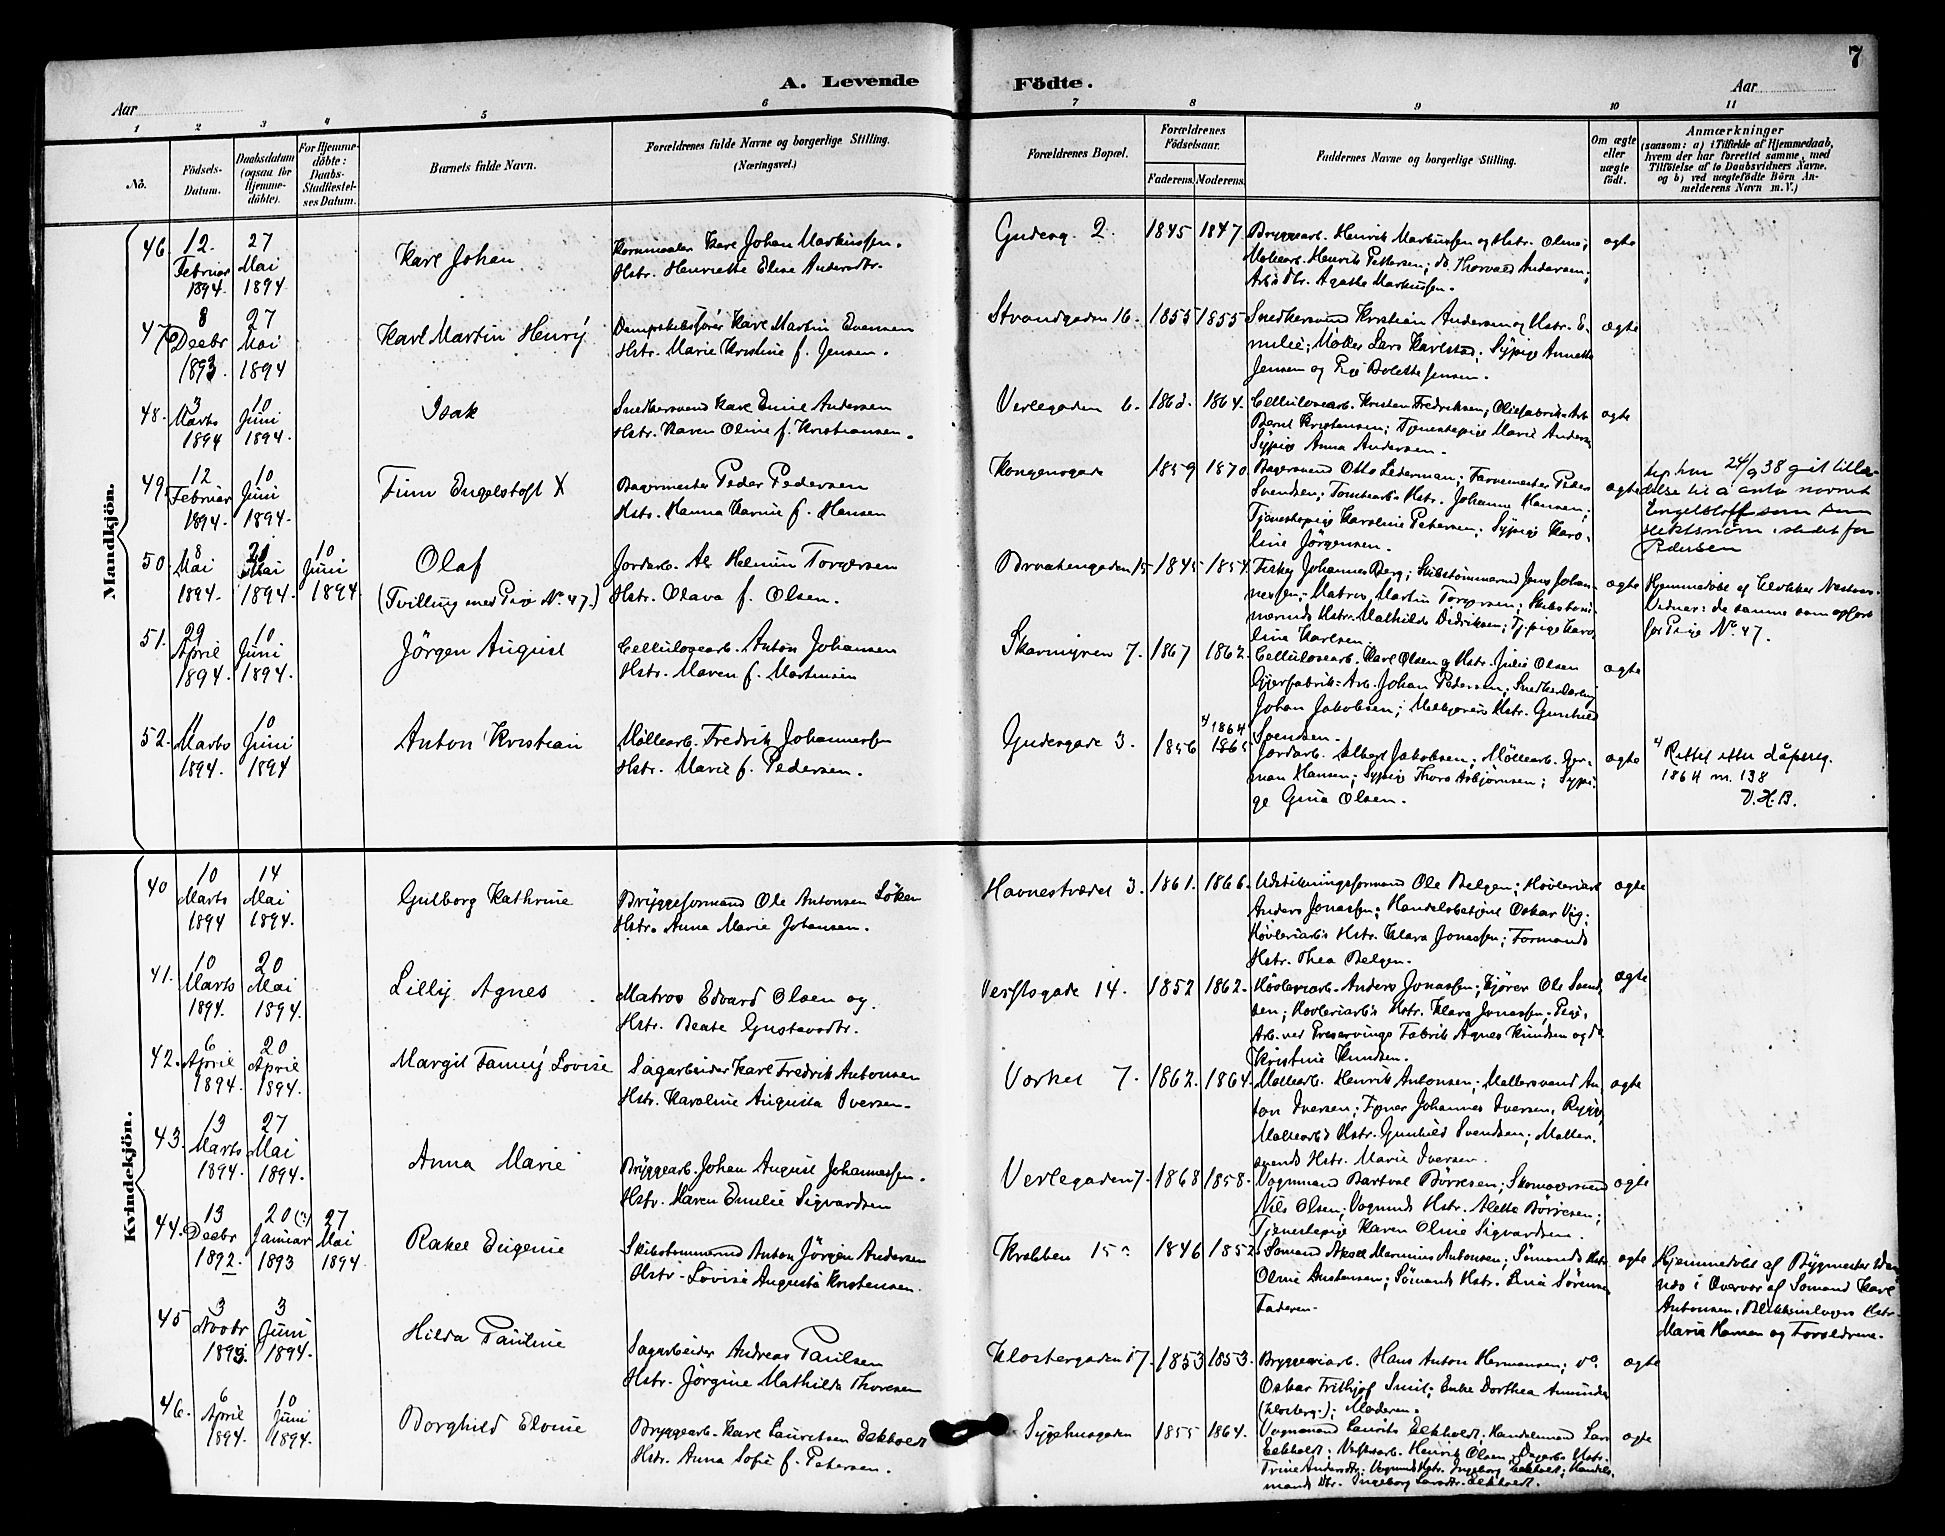 7
A. Levende Födte.
Aar Aar
1 2 3 4 5 6 7 8 9 10 11
No.
Födsels-
Datum.
Daabsdatum
(ogsaa for
Hjemme-
döbte).
For Hjemme-
döbte:
Daabs-
Stadfæstel-
ses Datum.
Barnets fulde Navn.
Forældrenes fulde Navne og borgerlige Stilling.
(Næringsvei.)
Forældrenes Bopæl.
Forældrenes
Födselsaar.
Faderens. Moderens.
Faddernes Navne og borgerlige Stilling.
Om ægte
eller
uægte
födt.
Anmærkninger
(saasom: a) i Tilfælde af Hjemmedaab,
hvem der har forrettet samme, med
Tilföielse af to Daabsvidners Navne,
og b) ved uægtefödte Börn An-
melderens Navn m. V.)
Mandkjön.
46. 12. Februar 1894. 27 Mai 1894.
Karl Johan
Kornmaaler Karl Johan Markussen.
Hstr. Henriette Elise Andersdtr.
2. 1845 1847.
Bryggearb. Henrik Markussen og Hstr. Oline;
Møllearb. Henrik Pettersen; do. Thorvald Andersen;
Arb's Dtr. Agathe Markussen.
ægte
47. 8 Decbr 1893. 27 Mai 1894
Karl Martin Henry
Dampskibsfører Karl Martin Evensen
Hstr. Marie Kristine f. Jensen.
Strandgaden 16. 1855 1855
Snedkersvend Kristian Andersen og Hstr. E-
milie; Møller Lars Karlstad; Sypige Annette
Jensen og Pige Bolette Jensen.
ægte
48. 3 Marts 1894 10 Juni 1894.
Isak
Snedkersvend Karl Emil Andersen
Hstr. Karen Oline f. Kristiansen.
Verlegaden 6. 1864.
Cellulosearb. Kristen Fredriksen; Oliefabrik-Arb.
Bernt Kristensen; Tjenestepige Marie Anders
Sypige Anna Andersen.
ægte
49. 12 Februar 1894. 10 Juni 1894.
Finn Engelstoft X
Bagermester Peder Pedersen
Hstr. Hanna Karine f. Hansen
Kongensgade 1859 1870
Bagersvend Otto Lederman; Farvemester Peder
Svendsen; Tomtearb. Hstr. Johanne Hansen;
Tjenestepige Karoline Petersen; Sypige Karo-
line Jörgensen.
ægte
24/9 38 git tilla-
delse til å anta navnet
Engelstoft som sam
slektsnavn istedet for
Pedersen
50. 8 Mai 1894. Mai 1894. 10 Juni 1894
Olaf
(Tvilling med Pige No. 47.)
Jordarb. Helmin Torgersen
Hstr. Olava f. Olsen.
Braatengaden 15 1845 1854.
Fisker Johannes Berg; Skibstømmermd Jens Johan-
nessen; Matros Martin Torgersen; Skibstøm-
mermds Hstr. Mathilde Didriksen; Tj.pige Karo-
line Karlsen.
ægte
Hjemmedöbt af Klokker
Vidner: de samme som opført
for Pige No. 47.
51. 29 April 1894. 10 Juni 1894.
Jörgen August
Cellulosearb. Anton Johansen
Hstr. Maren f. Martinsen
Skarmyren 7. 1867 1862.
Cellulosearb. Karl Olsen og Hstr. Julie Olsen
Johan Pedersen; Snedkerlærling
Johan Jakobsen; Hstr. Gunhild
Svendsen.
ægte
52. 11 Marts 1894. 10 Juni 1894
Anton Kristian
Møllearb. Fredrik Johannessen
Hstr. Marie f. Pedersen.
3. 1856 1864 1865
Jordarb. Albert Jakobsen; Møllearb. Her-
man Hansen; Sypige Thora Asbjørnsen; Sypi-
ge Gina Olsen.
ægte
Rettet etter dåpsreg.
1864 nr. 138
V.H.B.
Kvindekjön.
40 10 Marts 1894 14 Mai 1894.
Gulborg Kathrine
Bryggeformand Ole Antonsen Söken
Hstr. Anna Marie Johansen.
Havnestrædet 3. 1861. 1866.
Udstikningsformand Ole Belgen; Høvleriarb.
Anders Jonassen; Handelsbetjent Oskar Vig;
Høvleriarb's Hstr. Klara Jonassen; Formands
Hstr. Thea Belgen.
ægte
41. 10 Marts 1894. 20 Mai 1894.
Lilly Agnes
Matros Edvard Olsen og
Hstr. Beate Gustavsdtr.
Verftsgade 14. 1852 1862.
Høvleriarb. Anders Jonassen; Kjører Ole Svend-
sen; Høvleriarb's Hstr. Klara Jonassen; Pige,
Arb. ved Preservings Fabrik Agnes Knudsen og do
Kristine Knudsen.
ægte
42. 6 April 1894. 20 April 1894.
Margit Fanny Lovise
Sagarbeider Karl Fredrik Antonsen
Hstr. Karoline Augusta Iversen.
7. 1862. 1864.
Møllearb. Henrik Antonsen; Møllersvend An-
ton Iversen; Johannes Iversen,
Møllearb's Hstr. Gunhild Svendsen; Møller-
svends Hstr. Marie Iversen.
ægte
43. 13 Marts 1894. 27 Mai 1894.
Anna Marie
Bryggearb. Johan August Johannessen.
Hstr. Maren Emilie Sigvardsen
Verlegaden 7. 1868 1858.
Vognmand Bartval Börresen; Skomagersvend
Nils Olsen; Vognmds Hstr. Alette Börresen;
Tjenestepige Karen Oline Sigvardsen.
ægte
44. 13 Decbr 1892. 20 (?) Januar 1893 27 Mai 1894.
Rakel Eugenie
Skibstømmermd Anton Jörgen Andersen
Hstr. Lovise Augusta Kristensen.
Krabben 15a 1846 1852
Sömand Aksel Marinius Antonsen; Sömands Hstr.
Oline Anstensen; Sömands Hstr. Sörensen
Faderen.
ægte
Hjemmedöbt af Bygmester
i Overvær af Sömand Karl
Antonsen, Blikkenslagers Hstr.
Maria Hansen og Forældrene.
45 3 Novbr 1893. 3 Juni 1894.
Hilda Pauline
Sagarbeider Andreas Paulsen
Hstr. Jörgine Mathilde Thoresen
Klostergaden 17. 1853 1853.
Bryggeriarb. Hans Anton Hermansen; do.
Oskar Frithjof Smit; Enke Dorthea Amundsen
(Klosterg.); Moderen.
ægte
46. 6 April 1894. 10 Juni 1894.
Borghild Elvine
Bryggearb. Karl Lauritsen Eekholdt
Hstr. Anna Sofie f. Petersen.
Sygehusgaden 1855 1864.
Vognmand Laurits Eekholdt; Handelsmand Lars
Eekholdt; Verftsarb. Henrik Olsen; Hstr.
Trine Andersdtr; Vognmds Hstr. Ingeborg Eekholdt; Handels-
mands Dtr. Ingeborg Larsdtr. Eekholdt.
ægte